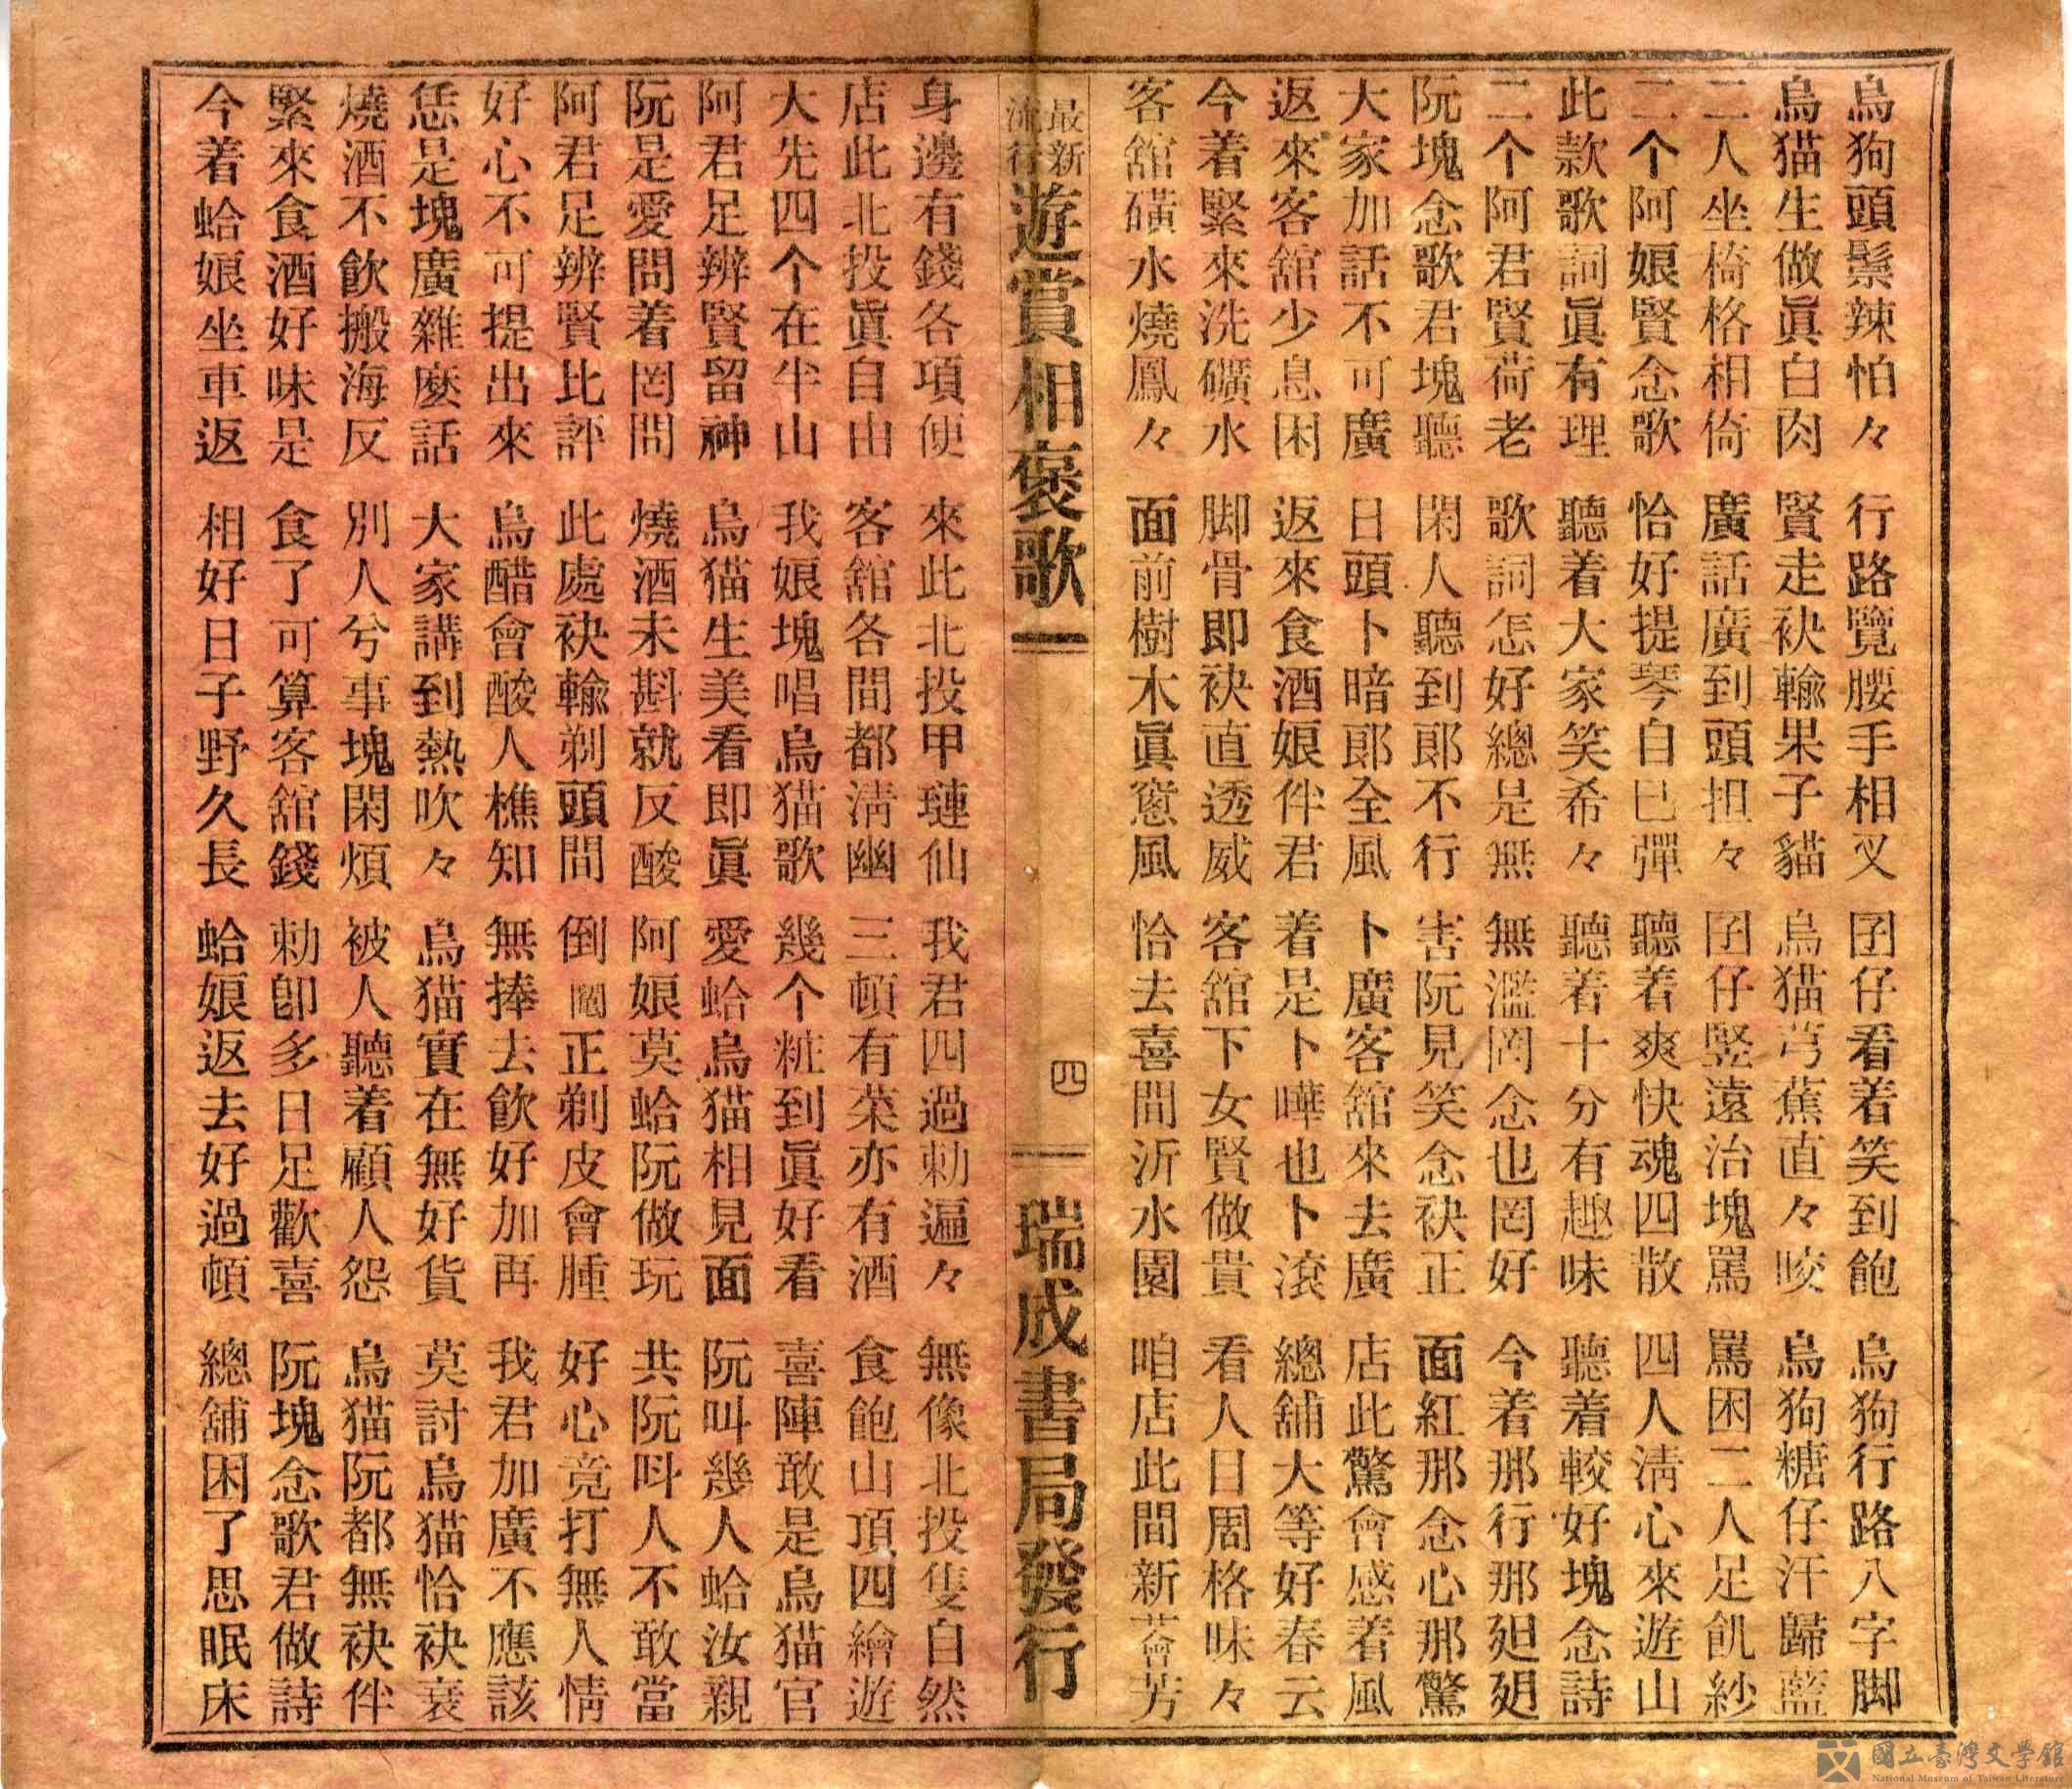 烏狗頭鬃辣怕々 行路覽腰手相叉 囝仔看着笑到飽 烏狗行路八字脚
烏猫生做眞白肉 賢走袂輸果子貓 烏猫芎蕉直々咬 烏狗糖仔汗歸藍
二人坐椅格相倚 廣話廣到頭担々 囝仔竪遠治塊罵 罵困二人足飢紗
二个阿娘賢念歌 恰好提琴自已彈 聽着爽快魂四散 四人淸心來遊山
此款歌詞眞有理 聽着大家笑希々 聽着十分有趣味 聽着較好塊念詩
二个阿君賢荷老 歌詞怎好總是無 無濫罔念也罔好 今着那行那廻
阮塊念歌君塊聽 閑人聽到郞不行 害阮見笑念袂正 面紅那念心那驚
大家加話不可廣 日頭卜暗郞全風 卜廣客舘來去廣 店此驚會感着風
返來客舘少息困 返來食酒娘伴君 着是卜嘩也卜滾 總舖大等好春云
今着緊來洗礦水 脚骨即袂直透威 客舘下女賢做貴 看人日周格味々
客舘磺水燒鳳々 面前樹木眞窓風 恰去喜間沂水園 咱店此間新薈芳
最新流行 遊賞相褒歌 四 瑞成書局發行
身邊有錢各項便 來此北投甲璉仙 我君四過勅遍々 無像北投隻自然
店此北投眞自由 客舘各間都淸幽 三頓有菜亦有酒 食飽山頂四繪遊
大先四个在半山 我娘塊唱烏猫歌 幾个粧到眞好看 喜陣敢是烏猫官
阿君足辨賢留神 烏猫生美看即眞 愛蛤烏猫相見面 阮叫幾人蛤汝親
阮是愛問着罔問 燒酒未斟就反酸 阿娘莫蛤阮做玩 共阮呌人不敢當
阿君足辨賢比評 此處袂輸剃頭間 倒鬮正剃皮會腫 好心竟打無人情
好心不可提出來 烏醋會酸人樵知 無捧去飮好加再 我君加廣不應該
恁是塊廣雜麽話 大家講到熱吹々 烏猫實在無好貨 莫討烏猫恰袂衰
燒酒不飮搬海反 別人兮事塊閑煩 被人聽着顧人怨 烏猫阮都無袂伴
緊來食酒好味是 食了可算客舘錢 勅卽多日足歡喜 阮塊念歌君做詩
今着蛤娘坐車返 相好日子野久長 蛤娘返去好過頓 總舖困了思眠床
國立臺灣文學館
National Museum of Taiwan Literature